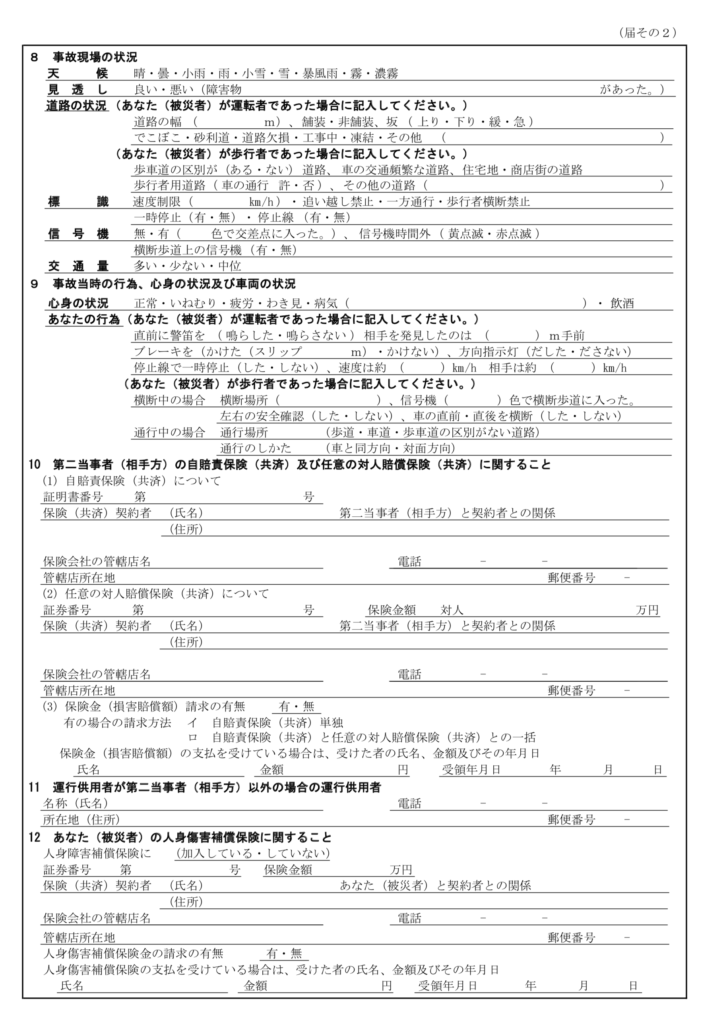 （届その２）
８　事故現場の状況
天　　候　　晴・曇・小雨・雨・小雪・雪・暴風雨・霧・濃霧
見　透　し　　良い・悪い（障害物　　　　　　　　　　があった。）
道路の状況（あなた（被災者）が運転者であった場合に記入してください。）
道路の幅　（　　　　　ｍ）、舗装・非舗装、坂　（ 上り・下り・緩・急 ）
でこぼこ・砂利道・道路欠損・工事中・凍結・その他　（　　　　　　　　　　）
（あなた（被災者）が歩行者であった場合に記入してください。）
歩車道の区別が（ある・ない）道路、車の交通頻繁な道路、住宅地・商店街の道路
歩行者用道路（ 車の通行　許・否 ）、その他の道路（　　　　　　　　　　）
標　　識　　速度制限（　　　　km/h）・ 追い越し禁止・一方通行・歩行者横断禁止
一時停止（有・無）・ 停止線 （有・無）
信　号　機　　無・有（　　色で交差点に入った。）、信号機時間外（ 黄点滅・赤点滅 ）
横断歩道上の信号機（有・無）
交　通　量　　多い・少ない・中位
９　事故当時の行為、心身の状況及び車両の状況
心身の状況　　正常・いねむり・疲労・わき見・病気（　　　　　　　　　　）・ 飲酒
あなたの行為（あなた（被災者）が運転者であった場合に記入してください。）
直前に警笛を （ 鳴らした・鳴らさない ）相手を発見したのは　（　　　　）ｍ手前
ブレーキを（かけた（スリップ　　　　ｍ）・かけない）、方向指示灯（だした・ださない）
停止線で一時停止（した・しない）、速度は約　（　　　）km/h　相手は約　（　　　）km/h
（あなた（被災者）が歩行者であった場合に記入してください。）
横断中の場合　横断場所（　　　　　　　　）、信号機（　　　　）色で横断歩道に入った。
左右の安全確認（した・しない）、車の直前・直後を横断（した・しない）
通行中の場合　通行場所　　　（歩道・車道・歩車道の区別がない道路）
通行のしかた　　（車と同方向・対面方向）
10　第二当事者（相手方）の自賠責保険（共済）及び任意の対人賠償保険（共済）に関すること
(1) 自賠責保険（共済）について
証明書番号　　第　　　　　　　　　　号
保険（共済）契約者　（氏名）　　　　　　　　　　第二当事者（相手方）と契約者との関係
（住所）
保険会社の管轄店名　　　　　　　　　　電話　　　－　　　－
管轄店所在地　　　　　　　　　　郵便番号　　－
(2) 任意の対人賠償保険（共済）について
証券番号　　第　　　　　　　　　　号　　　保険金額　　対人　　　　　　　　　　万円
保険（共済）契約者　（氏名）　　　　　　　　　　第二当事者（相手方）と契約者との関係
（住所）
保険会社の管轄店名　　　　　　　　　　電話　　　－　　　－
管轄店所在地　　　　　　　　　　郵便番号　　－
(3) 保険金（損害賠償額）請求の有無　　有・無
有の場合の請求方法　イ　自賠責保険（共済）単独
ロ　自賠責保険（共済）と任意の対人賠償保険（共済）との一括
保険金（損害賠償額）の支払を受けている場合は、受けた者の氏名、金額及びその年月日
氏名　　　　　　　　　　金額　　　　　　　　円　　受領年月日　　　年　　　月　　　日
11　運行供用者が第二当事者（相手方）以外の場合の運行供用者
名称（氏名）　　　　　　　　　　電話　　　－　　　－
所在地（住所）　　　　　　　　　　郵便番号　　－
12　あなた（被災者）の人身傷害補償保険に関すること
人身障害補償保険に　　（加入している・していない）
証券番号　　第　　　　　　　　号　　保険金額　　　　　　万円
保険（共済）契約者　（氏名）　　　　　　　　　　あなた（被災者）と契約者との関係
（住所）
保険会社の管轄店名　　　　　　　　　　電話　　　－　　　－
管轄店所在地　　　　　　　　　　郵便番号　　－
人身傷害補償保険金の請求の有無　　　有・無
人身傷害補償保険の支払を受けている場合は、受けた者の氏名、金額及びその年月日
氏名　　　　　　　　　　金額　　　　　　　　円　　受領年月日　　　年　　　月　　　日